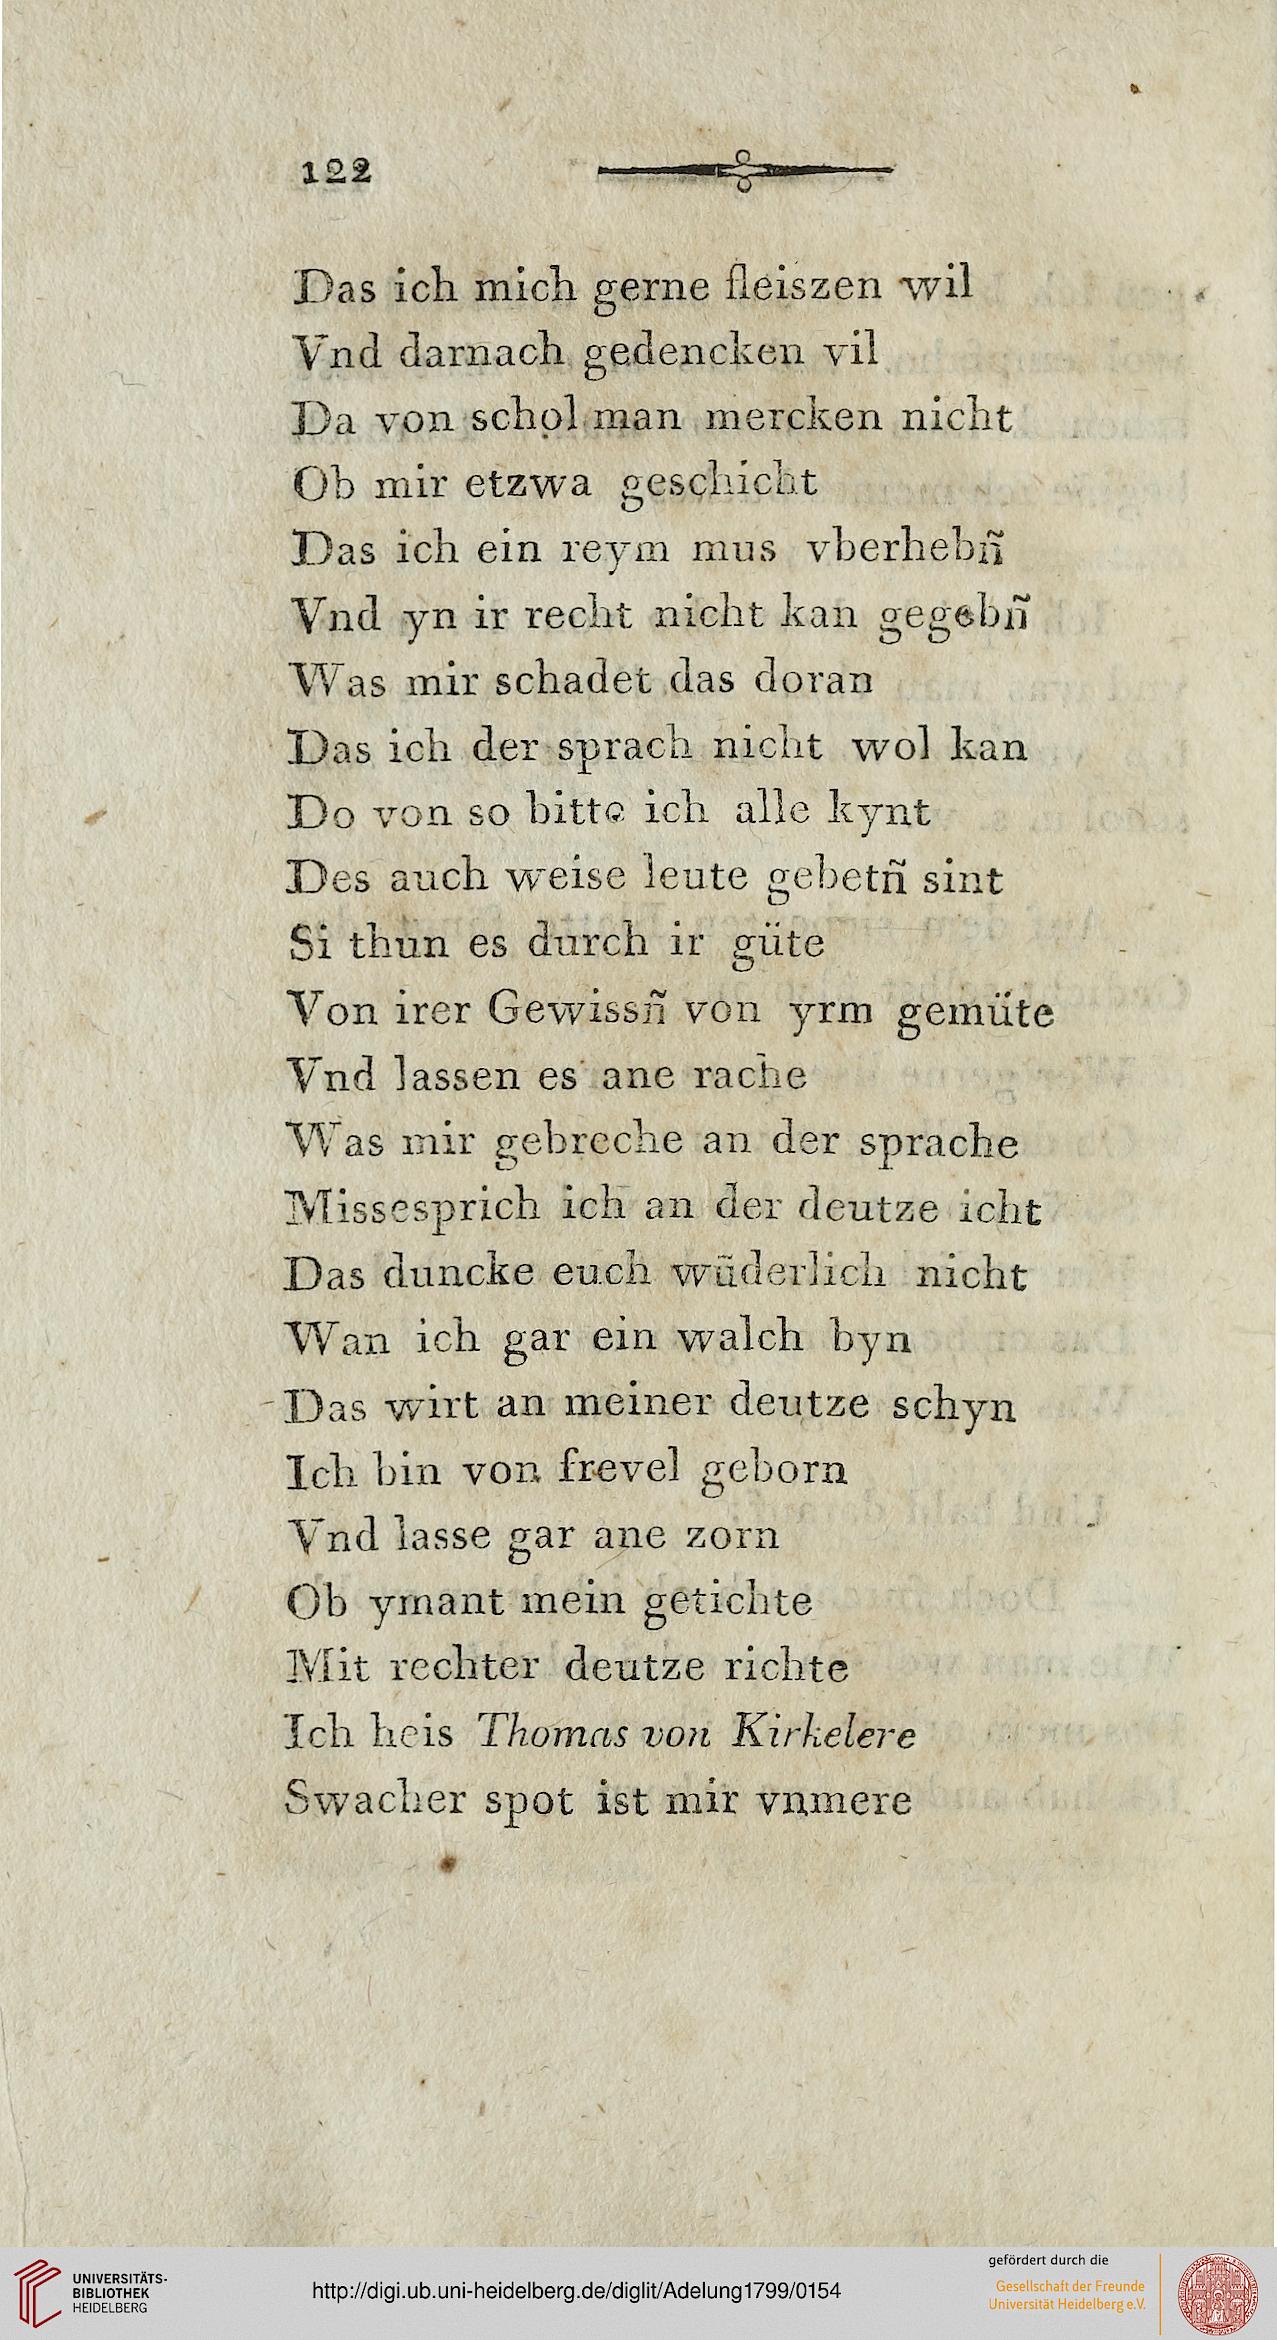 122
Das ich mich gerne fleiszen wil
Vnd darnach gedencken vil
Da von schol man mercken nicht
Ob mir etzwa geschicht
Das ich ein reym mus vberhebñ
Vnd yn ir recht nicht kan gegebñ
Was mir schadet das doran
Das ich der sprach nicht wol kan
Do von so bitte ich alle kynt
Des auch weise leute gebetñ sint
Si thun es durch ir güte
Von irer Gewissñ von yrm gemüte
Vnd lassen es ane rache
Was mir gebreche an der sprache
Missesprich ich an der deutze icht
Das duncke euch wũderlich nicht
Wan ich gar ein walch byn
Das wirt an meiner deutze schyn
Ich bin von frevel geborn
Vnd lasse gar ane zorn
Ob ymant mein getichte
Mit rechter deutze richte
Ich heis Thomas von Kirkelere
Swacher spot ist mir vnmere
UNIVERSITÄTS-
BIBLIOTHEK
HEIDELBERG
http://digi.ub.uni-heidelberg.de/diglit/Adelung1799/0154
gefördert durch die
Gesellschaft der Freunde
Universität Heidelberg e.V.